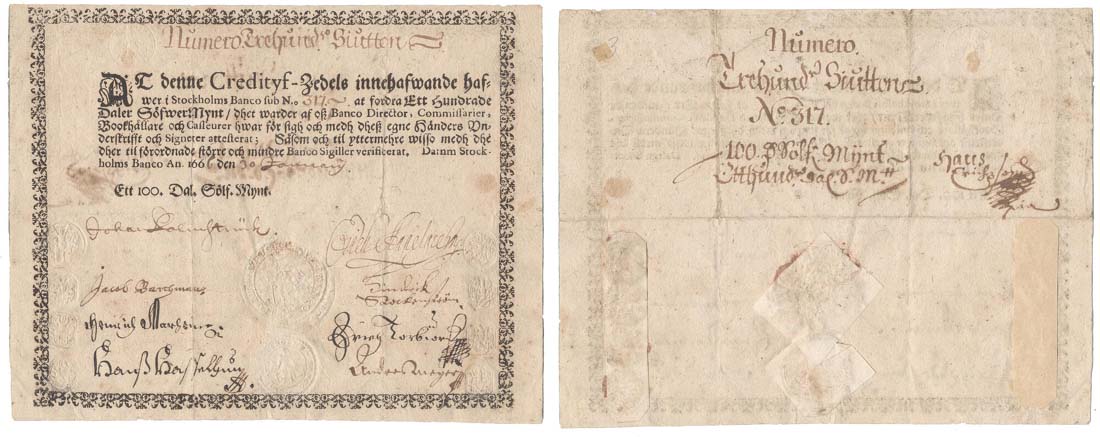 Numero Trehund Siutton
AT denne Credityf-Zedels innehafwande haf-
wer i Stockholms Banco sub N.o 317. at fordra Ett Hundrade
Daler Sölfwer-Mynt / dhet warder af oß Banco Director, Commissarier,
Bookhållare och Casseurer hwar för sigh och medh dheß egne Händers Vn-
derskrifft och Signeter attesterat; Såsom och til yttermehre wisso medh dhe
dher til förordnade större och mindre Banco Sigiller verificerat. Datum Stock-
holms Banco An. 166 den 30
Ett 100. Dal. Sölf. Mynt.
Johan Palmstruck
Jacob Barchman
Hinrich
Erich Torbiör
Hanß
Anders Meyer
Numero.
Trehund Siutton
No 317.
100. Sölf. Mÿnt
Etthund
Hans